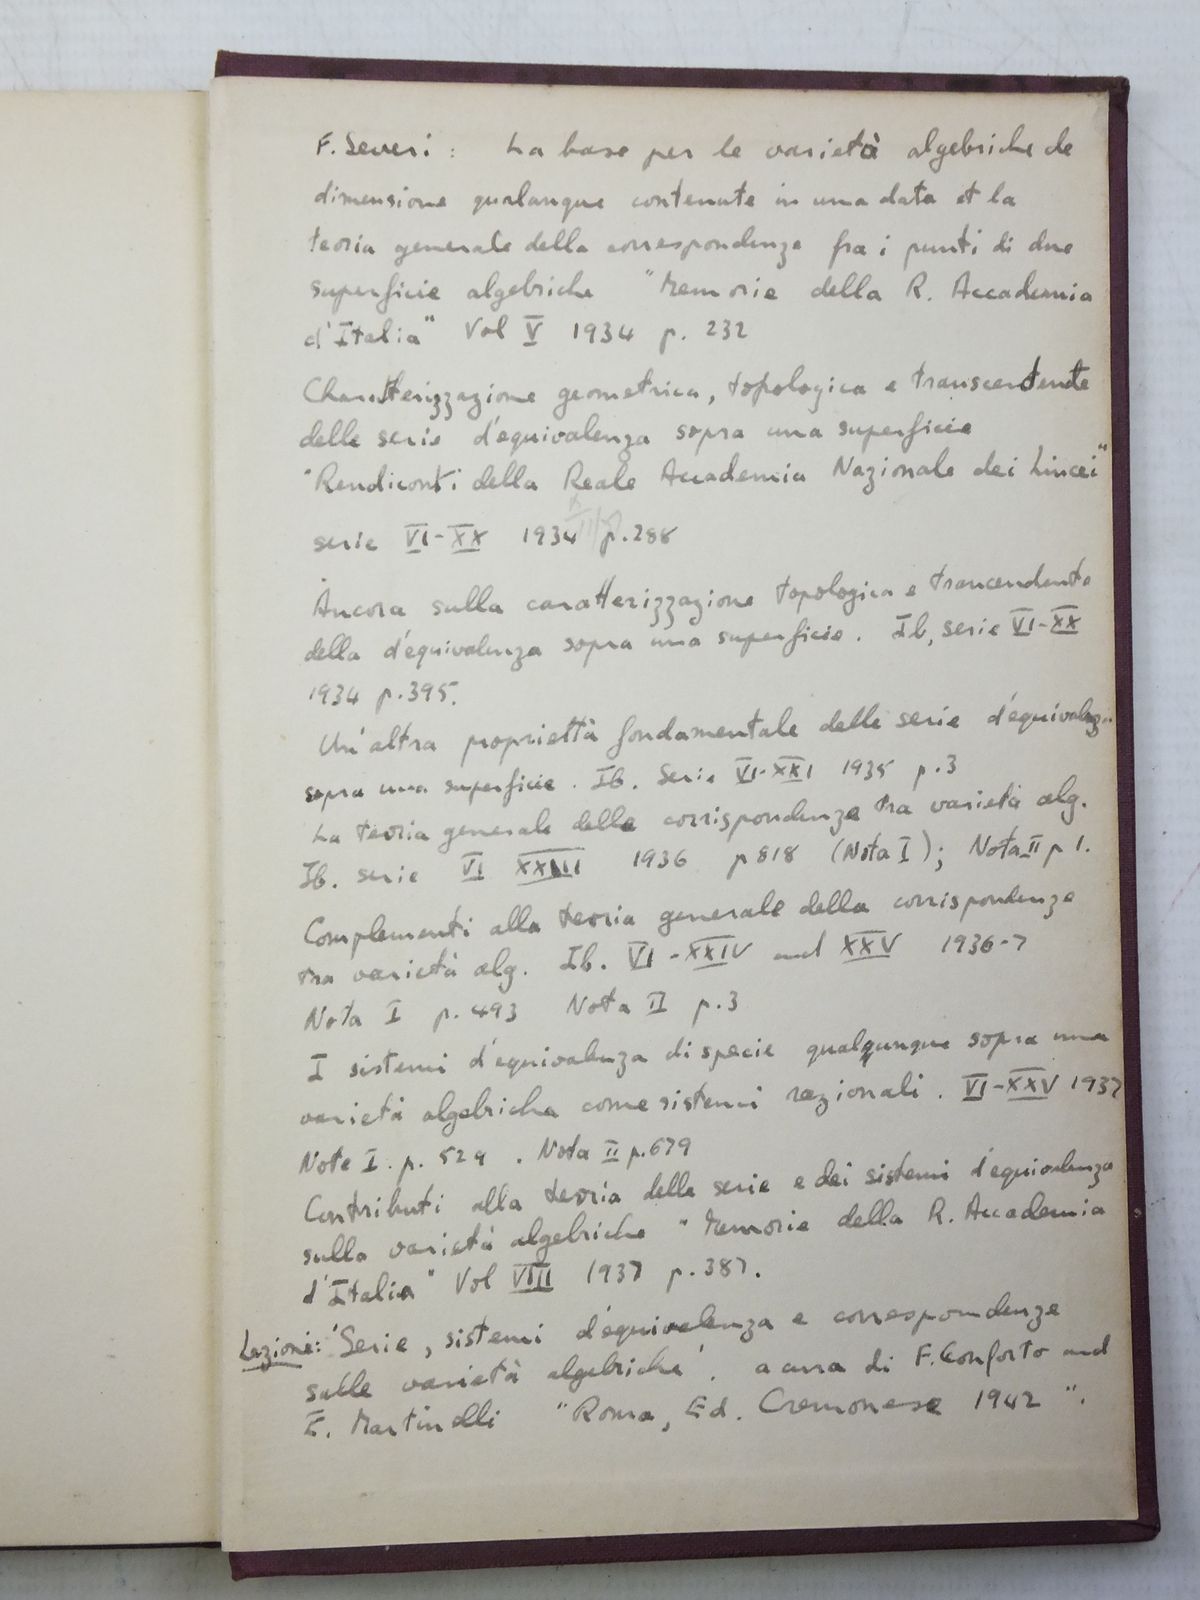 F. Severi : La base per le varietà algebriche de
dimensione qualunque contenute in una data et la
teoria generale della correspondenze fra i punti di due
superficie algebriche "Memorie della R. Accademia
d'Italia" Vol V 1934 p. 232
Charatterizzazione geometrica, topologica e transcentente
delle serie d'equivalenza sopra una superficie
"Rendiconti della Reale Accademia Nazionale dei Lincei"
serie VI-XX 1934 p.288
Ancora sulla caratterizzazione topologica e trancendente
della d'equivalenza sopra una superficie. Ib, serie VI-XX
1934 p.395.
Un'altra proprietà fondamentale delle serie d'equivalenza
sopra una superficie. Ib. Serie VI-XXI 1935 p.3
La teoria generale delle corrispondenze tra varietà alg.
Ib. serie VI XXIII 1936 p 818 (Nota I); Nota II p 1.
Complementi alla teoria generale della corrispondenze
tra varietà alg. Ib. VI-XXIV and XXV 1936-7
Nota I p. 493 Nota II p.3
I sistemi d'equivalenza di specie qualqunque sopra una
varietà algebriche come sistemi razionali. VI-XXV 1937
Note I. p. 529. Nota II p.679
Contributi alla teoria delle serie e dei sistemi d'equivalenza
sulla varietà algebriche "Memorie della R. Accademia
d'Italia" Vol VIII 1937 p.387.
Lezione: 'Serie, sistemi d'equivalenza e correspondenze
sulle varietà algebriche'. a cura di F. Conforto and
E. Martinelli "Roma, Ed. Cremonese 1942".